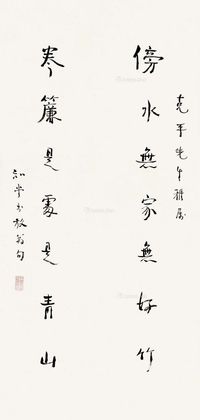 克平先生雅属
傍水無家無好竹
卷簾是處是青山
知堂書放翁句